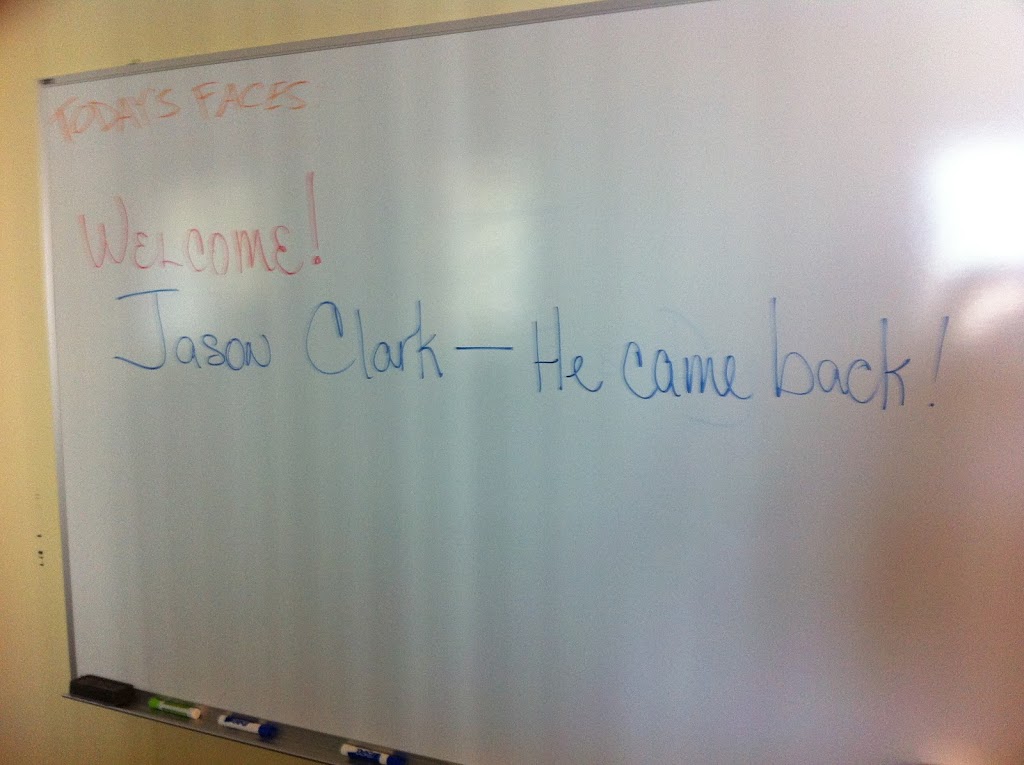 TODAY'S FACES
WELCOME!
Jason Clark — He came back!